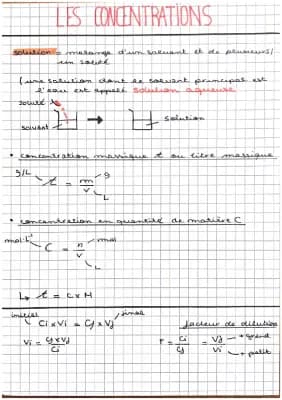 LES CONCENTRATIONS
solution = mélange d'un solvant et de plusieurs/
un soluté
(une solution dont le solvant principal est
l'eau est appelé solution aqueuse
soluté
solvant
solution
• concentration massique t ou titre massique
g/L t = m/v g
L
• concentration en quantité de matière C
mol.L⁻¹ C = n/v mol
L
↳ t = C x M
initial final
Ci x Vi = Cf x Vf
Vi = Cf x Vf / Ci
facteur de dilution
F = Ci/Cf = Vf/Vi → + grand
→ + petit